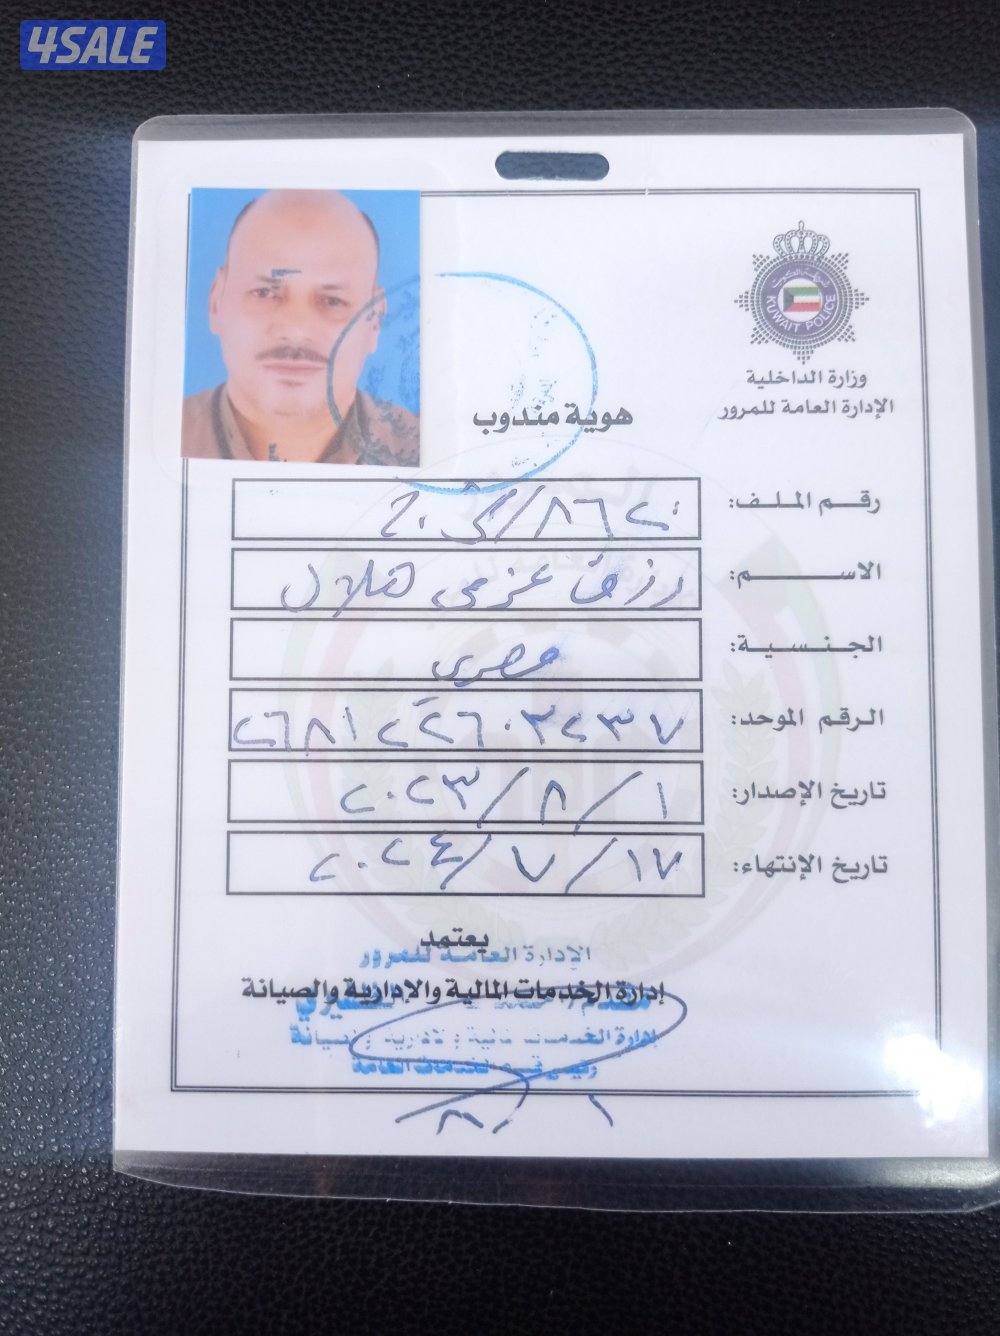 4SALE
KUWAIT POLICE
وزارة الداخلية
الإدارة العامة للمرور
هوية مندوب
رقم الملف:
الاسم: رزق عزمي هلال
الجنسية: مصري
الرقم الموحد:
تاريخ الإصدار: ١/٨/٢٠٢٣
تاريخ الإنتهاء: ١٧/٧/٢٠٢٤
يعتمد
الإدارة العامة للمرور
إدارة الخدمات المالية والإدارية والصيانة
رئيس قسم الخدمات العامة
١/٨